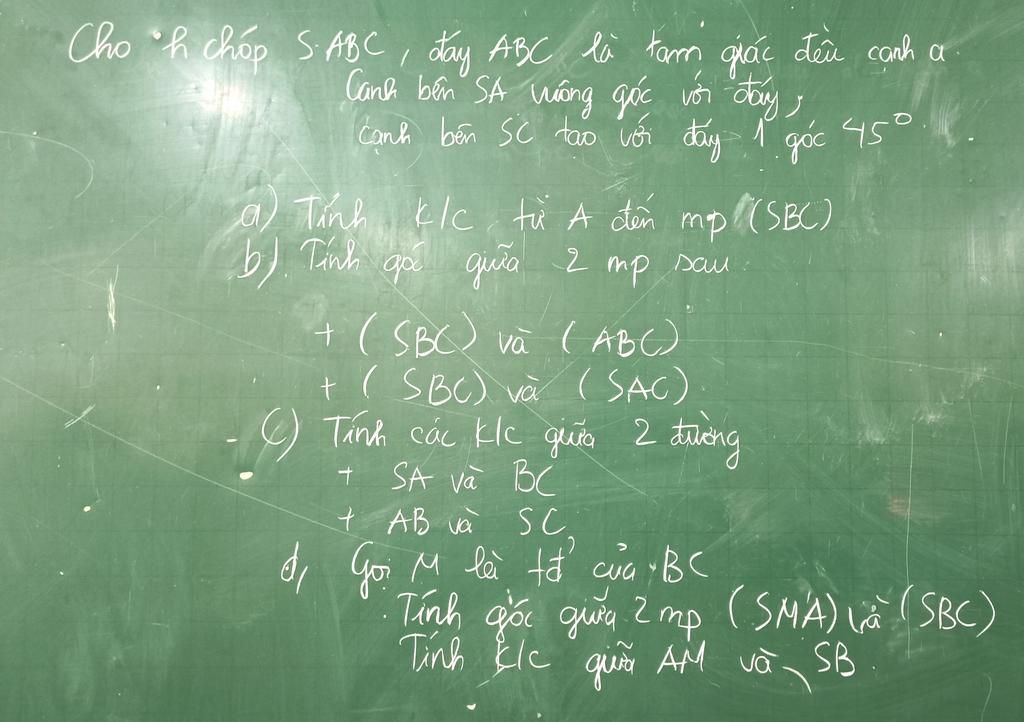 Cho h chóp S.ABC, đáy ABC là tam giác đều cạnh a.
Cạnh bên SA vuông góc với đáy,
cạnh bên SC tạo với đáy 1 góc 45°.
a) Tính k/c từ A đến mp (SBC)
b). Tính góc giữa 2 mp sau.
+ (SBC) và (ABC)
+ (SBC) và (SAC).
c) Tính các k/c giữa 2 đường
+ SA và BC
+ AB và SC
d, Gọi M là tđ' của BC
Tính góc giữa 2 mp (SMA) và (SBC)
Tính k/c giữa AM và SB.